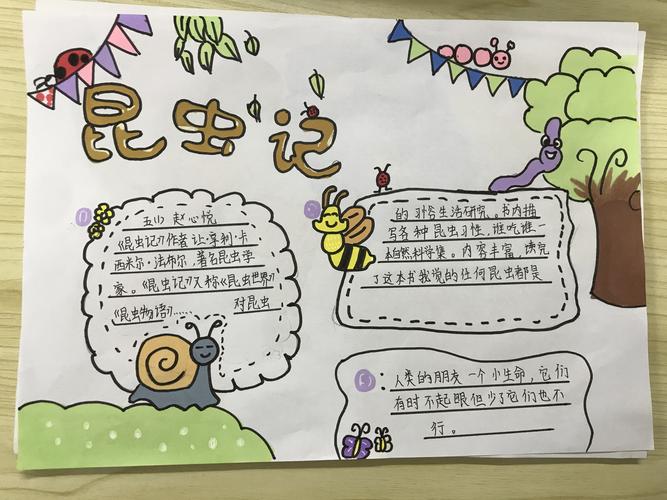 昆虫记
五(1) 赵心悦
《昆虫记》作者 让·亨利·卡
西米尔·法布尔,著名昆虫学
家。《昆虫记》又称《昆虫世界》
《昆虫物语》…… 对昆虫
的习容生活研究。书内描
写各种昆虫习性,谁吃谁一
本自然科学集。内容丰富,读完
了这本书我觉的任何昆虫都是
人类的朋友一个小生命,它们
有时不起眼但少了它们也不
行。